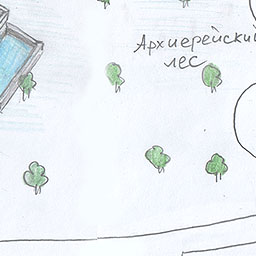 Архиерейский
лес